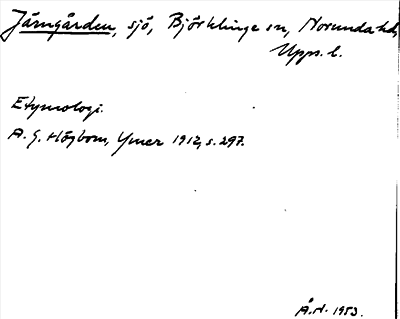 Järngården, sjö, Björklinge sn, Norunda hd,
Upps. l.
Etymologi.
A. G. Högbom, Ymer 1912, s. 297.
Å.H. 1953.